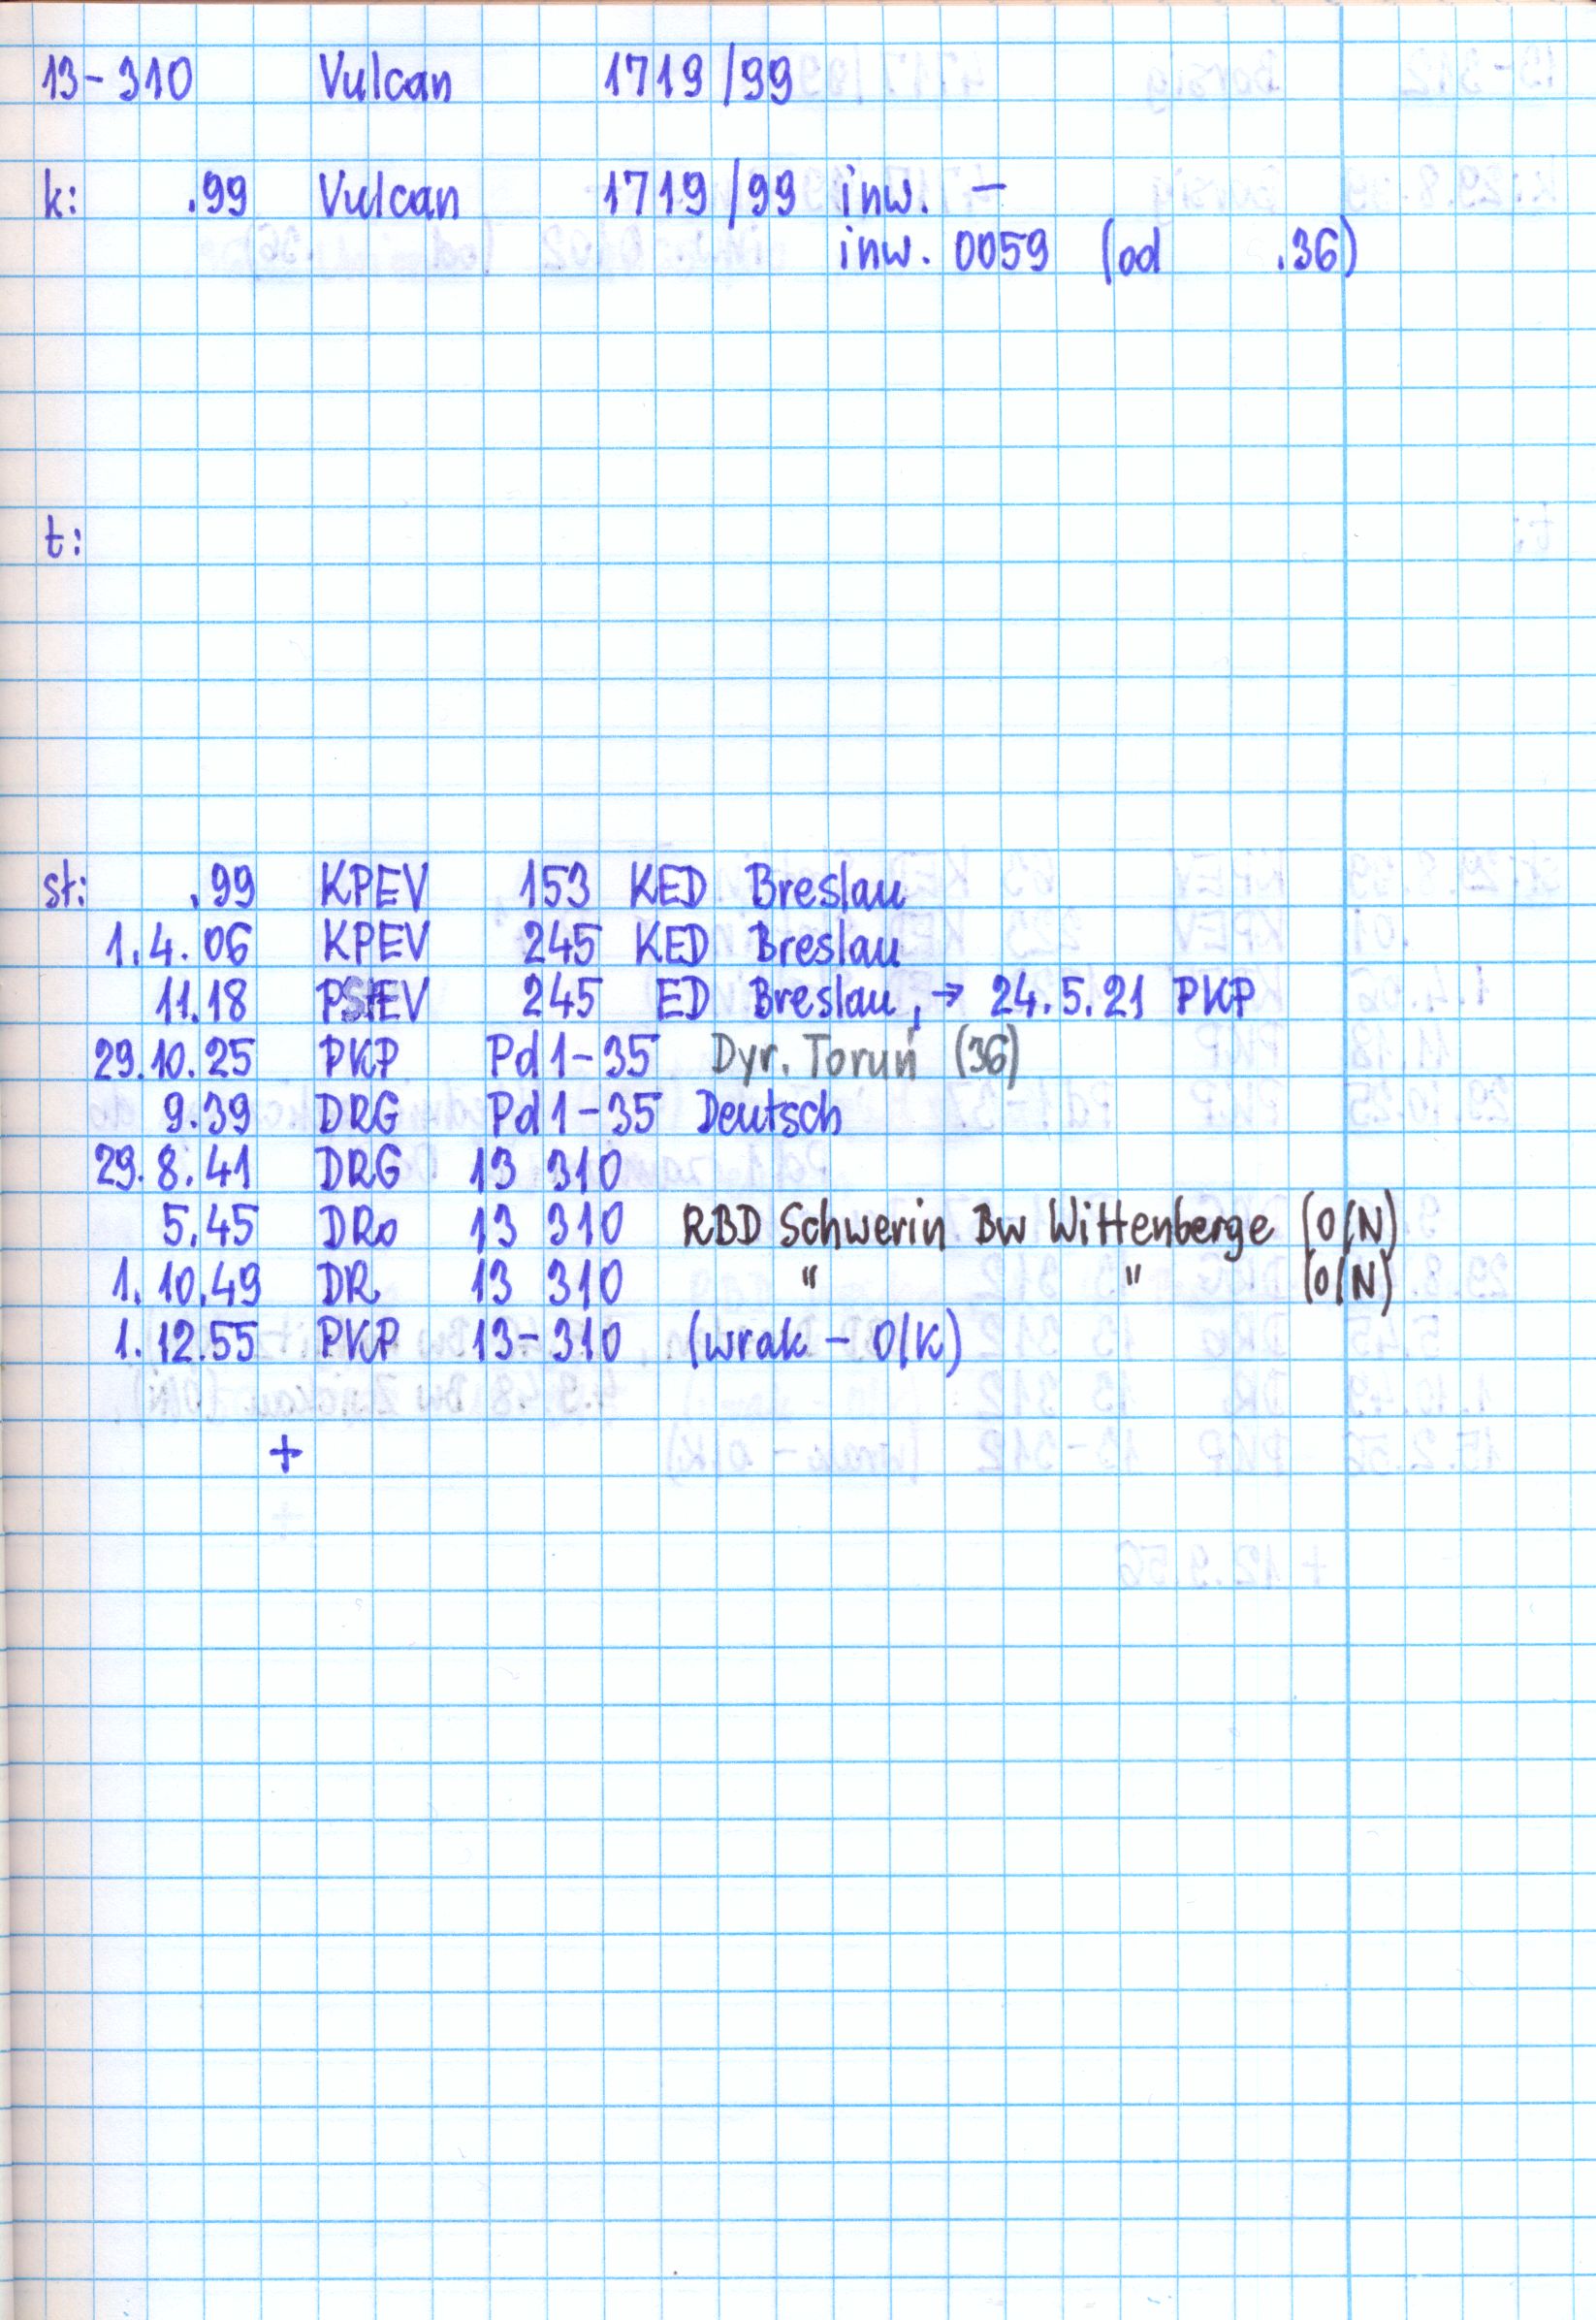 13-310 Vulcan 1719/99
k: .99 Vulcan 1719/99 inw. -
inw. 0059 (od .36)
t:
st: .99 KPEV 153 KED Breslau
1.4.06 KPEV 245 KED Breslau
11.18 PStEV 245 ED Breslau, → 24.5.21 PKP
29.10.25 PKP Pd1-35 Dyr. Toruń (36)
9.39 DRG Pd1-35 Deutsch
29.8.41 DRG 13 310
5.45 DRo 13 310 RBD Schwerin Bw Wittenberge (O/N)
1.10.49 DR 13 310 " " (O/N)
1.12.55 PKP 13-310 (wrak - O/K)
+